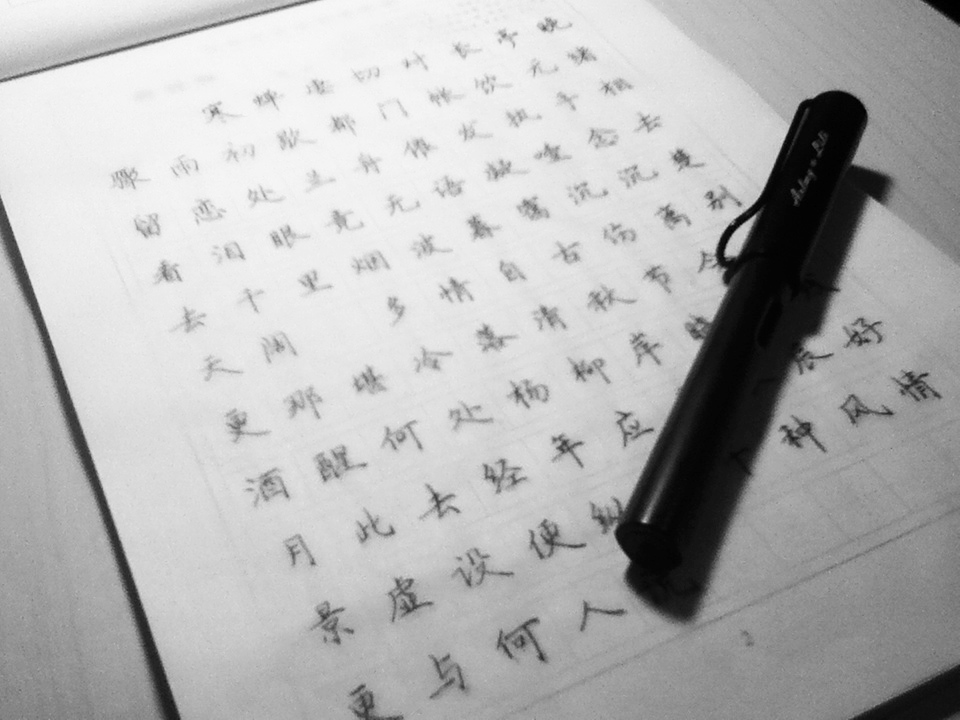 寒蝉凄切对长亭晚
骤雨初歇都门帐饮无绪
留恋处兰舟催发执手相
看泪眼竟无语凝噎念去
去千里烟波暮霭沉沉楚
天阔 多情自古伤离别
更那堪冷落清秋节今
酒醒何处杨柳岸晓
月此去经年应 辰好
景虚设便纵 种风情
更与何人说
2